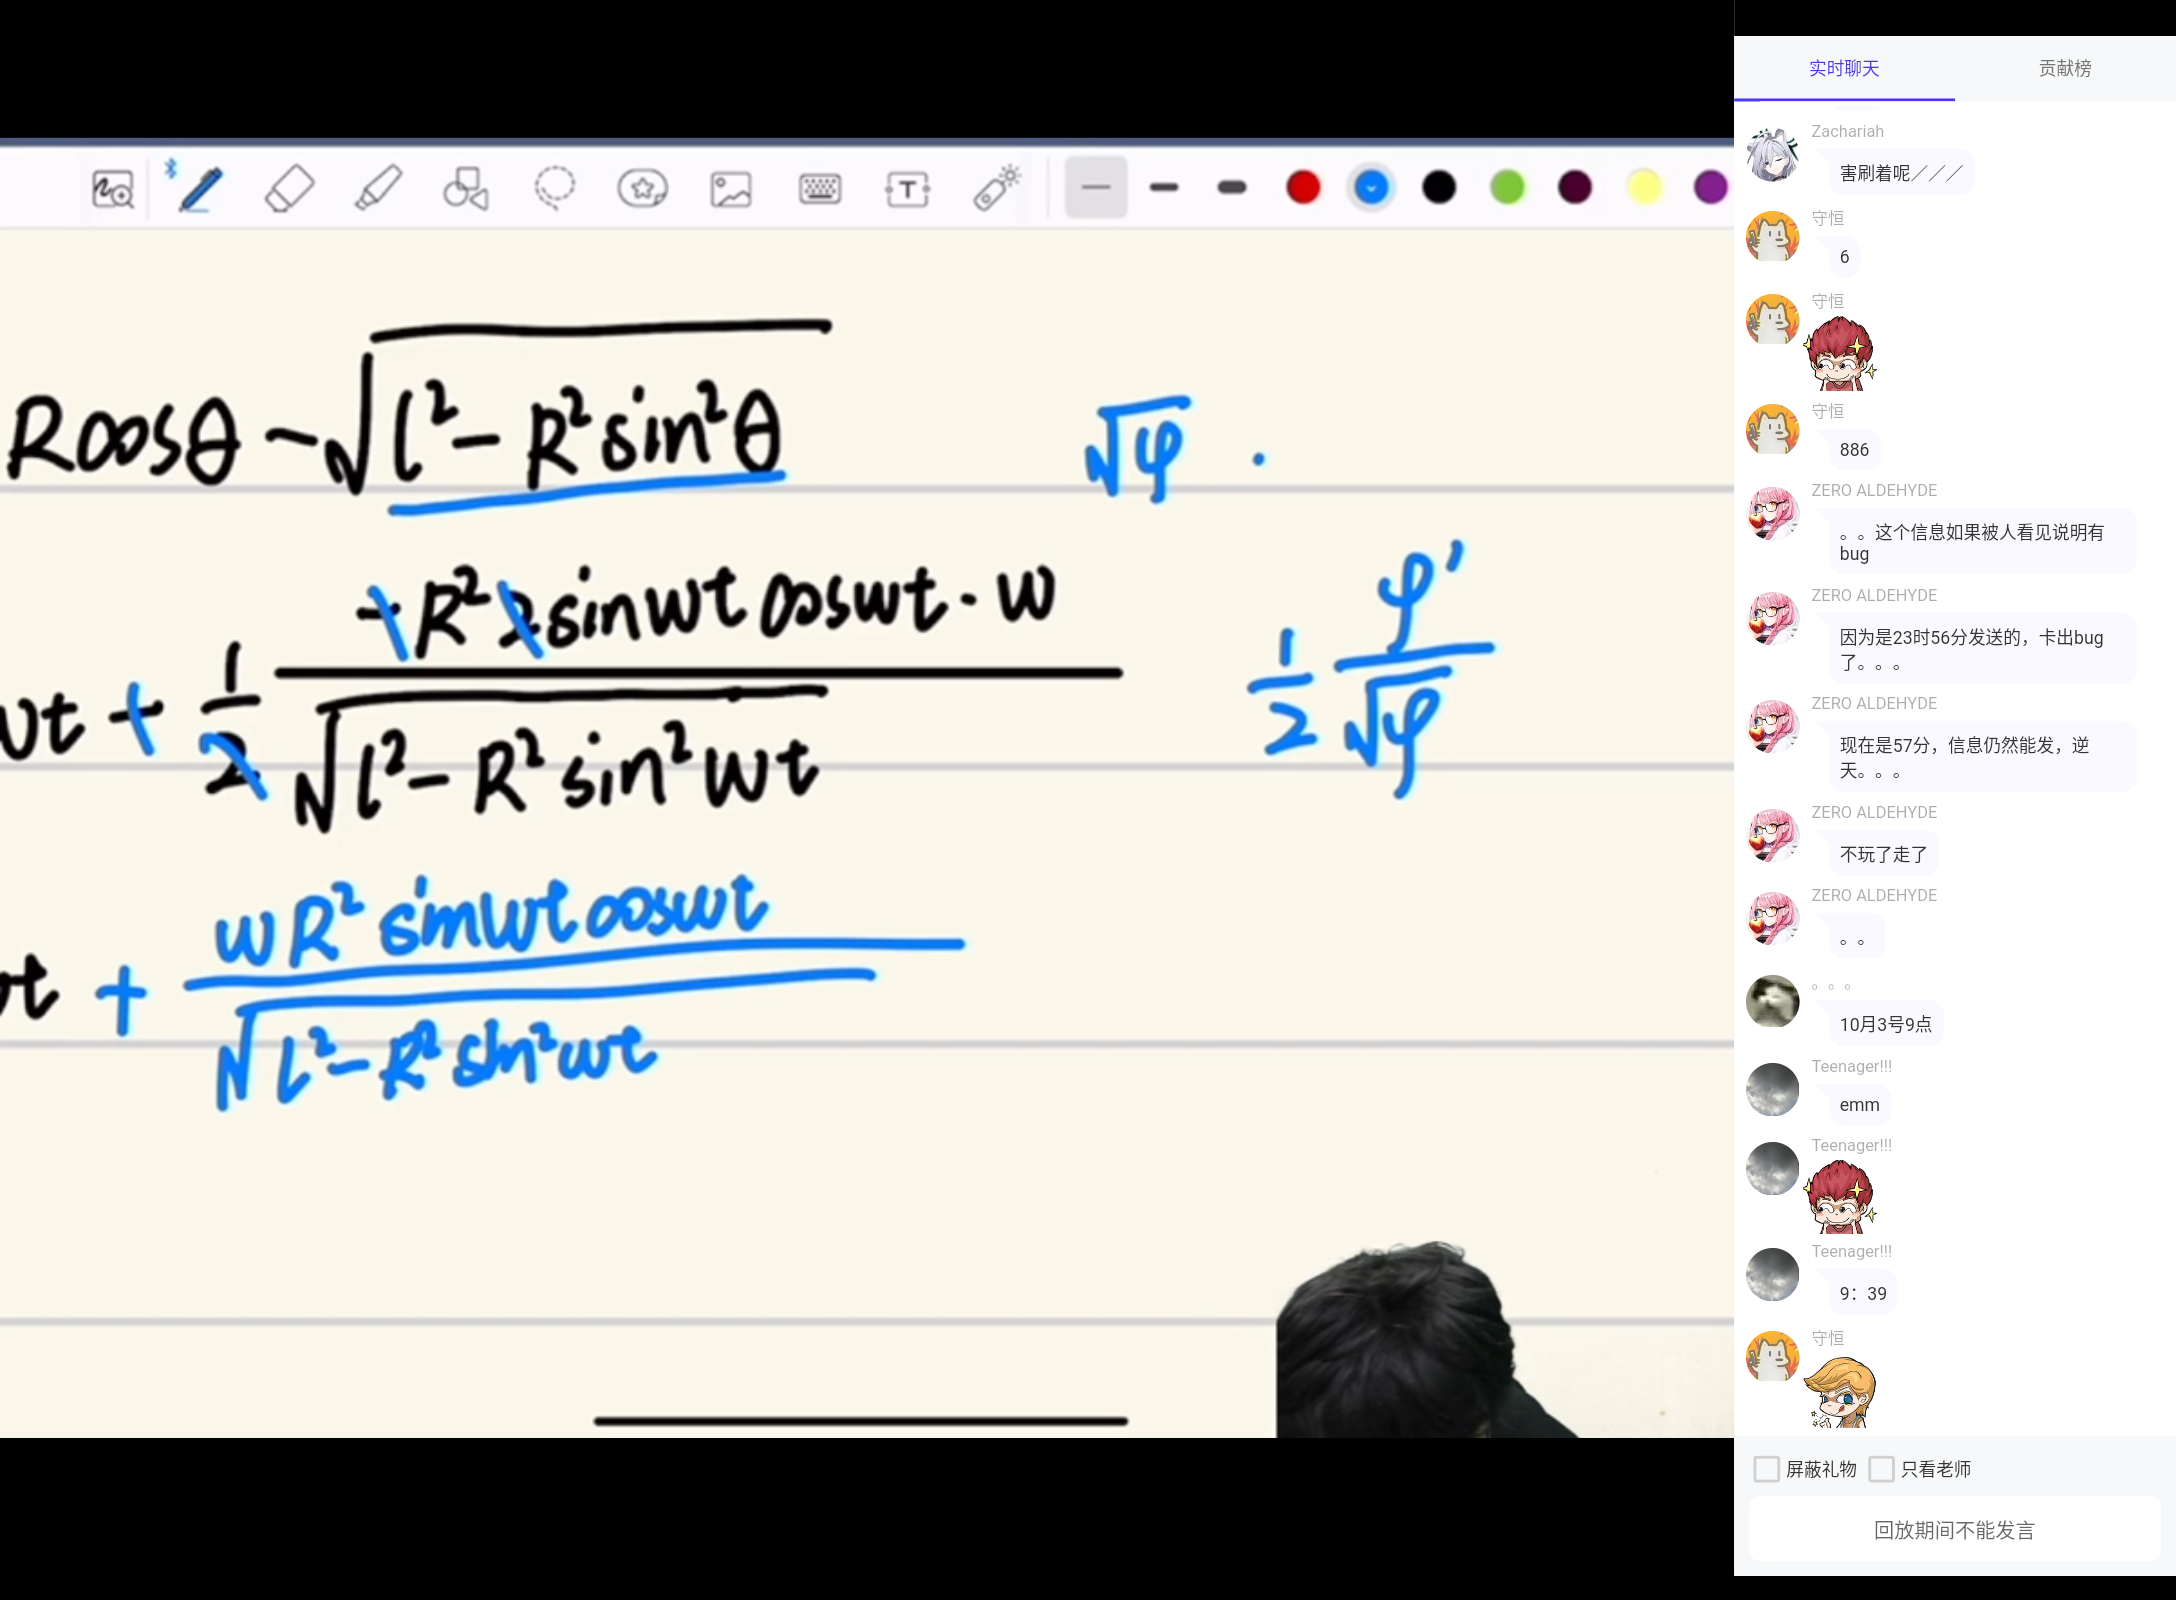 Rcosθ - √(l² - R²sin²θ)
√φ ·
ωt + 1/2 (-R² 2sinωt cosωt · ω)/√(l² - R²sin²ωt)
1/2 φ'/√φ
ωt + (ωR² sinωt cosωt)/√(l² - R²sin²ωt)
T
实时聊天 贡献榜
Zachariah
害刷着呢／／／
守恒
6
守恒
守恒
886
ZERO ALDEHYDE
。。这个信息如果被人看见说明有
bug
ZERO ALDEHYDE
因为是23时56分发送的，卡出bug
了。。。
ZERO ALDEHYDE
现在是57分，信息仍然能发，逆
天。。。
ZERO ALDEHYDE
不玩了走了
ZERO ALDEHYDE
。。
。。。
10月3号9点
Teenager!!!
emm
Teenager!!!
Teenager!!!
9：39
守恒
屏蔽礼物 只看老师
回放期间不能发言